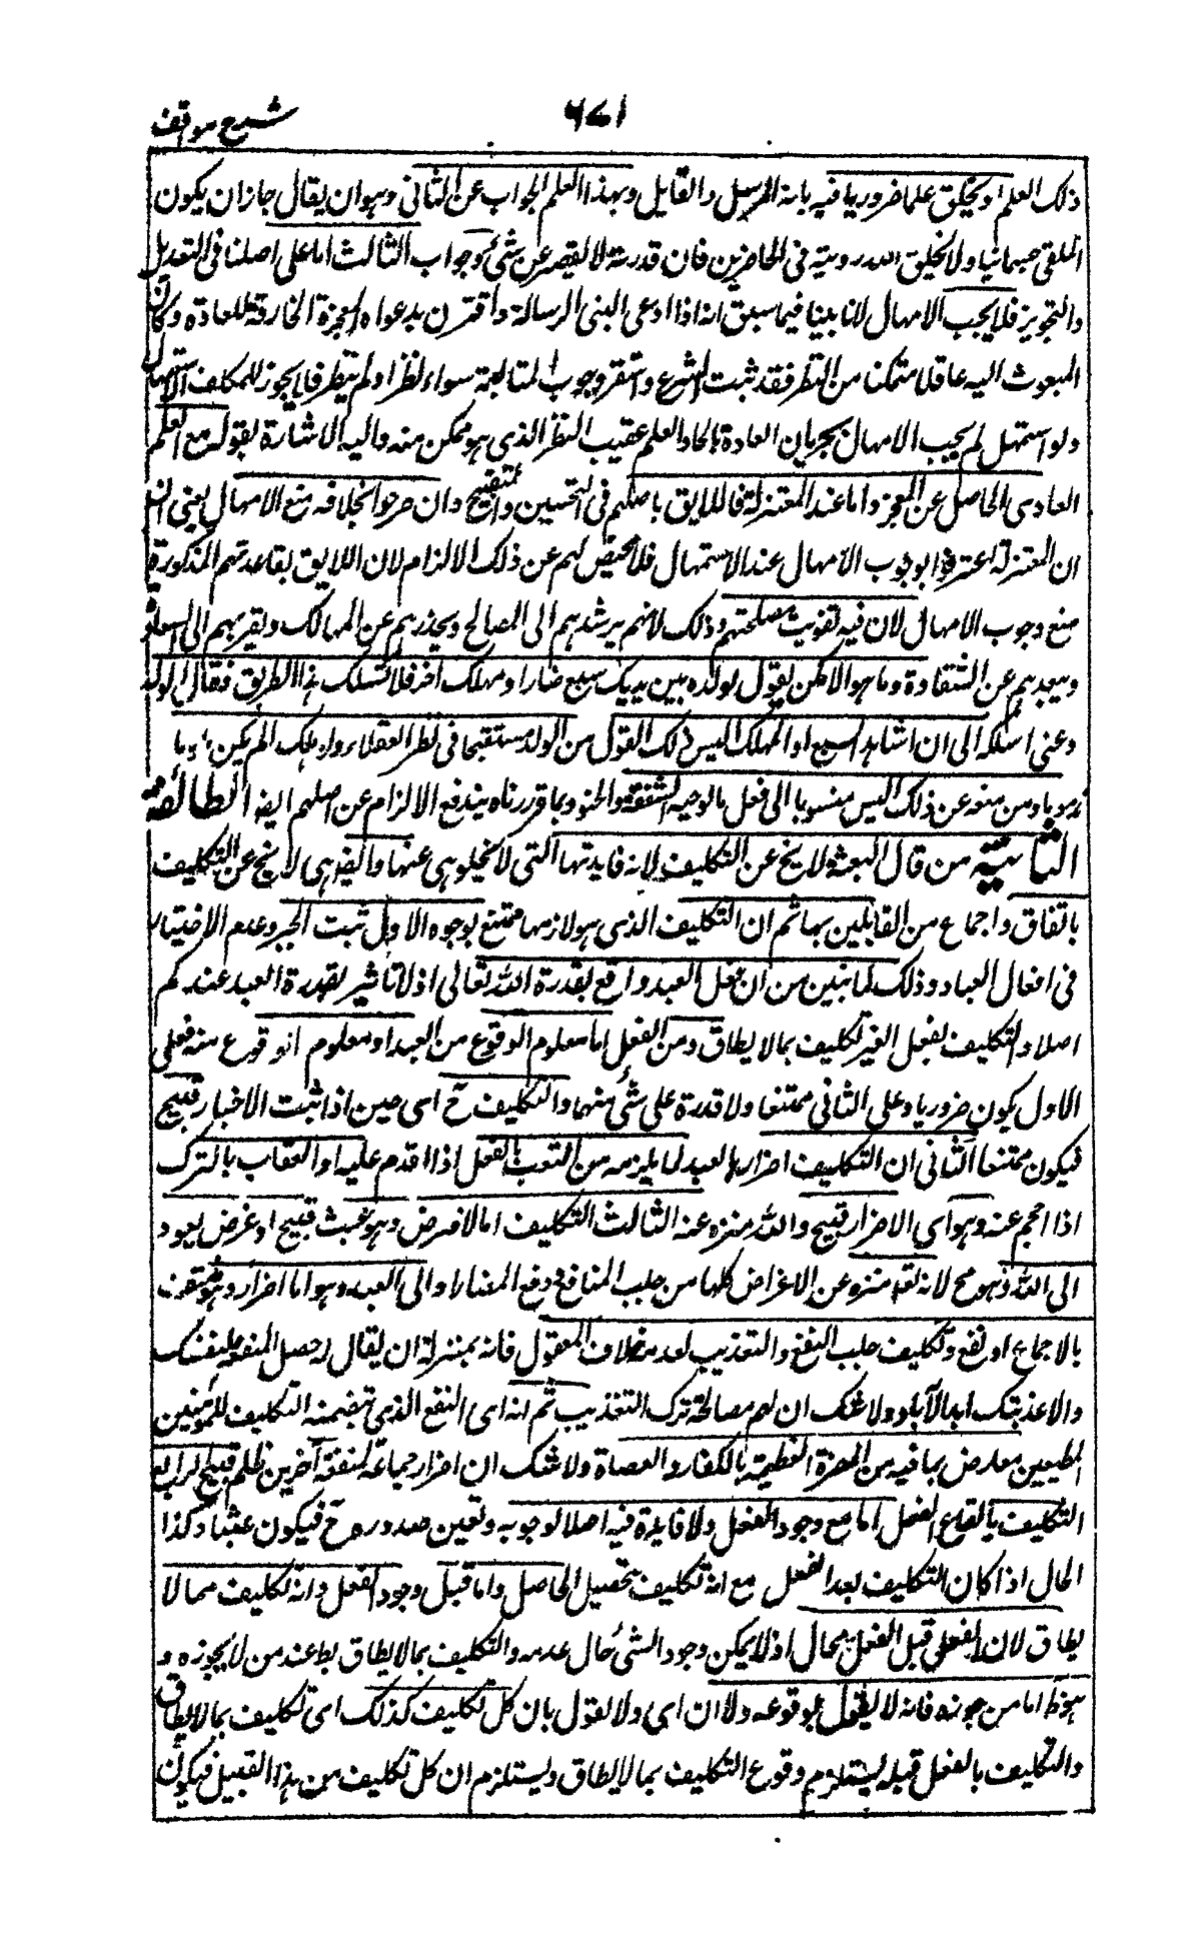 ٦٧١ شرح مواقف
ذلك العلم او يخلق علما ضروريا فيه بانه المرسل والقايل وبهذا العلم الجواب عن الثانى وهو ان يقال جاز ان يكون
الملقى جسمانيا ولا يخلق الله رويته فى الحاضرين فان قدرته لا تقصر عن شئ وجواب الثالث اما على اصلنا فى التعديل
والتجويز فلا يجب الامهال لانا بينا فيما سبق انه اذا ادعى النبى الرسالة واقترن بدعواه المعجزة الخارقة للعادة وكان
المبعوث اليه عاقلا متمكنا من النظر فقد ثبت الشرع واستقر وجوب المتابعة سواء نظر او لم ينظر فلا يجوز للمكلف الاستمهال
ولو استمهل لم يجب الامهال بجريان العادة بايجاد العلم عقيب النظر الذى هو ممكن منه واليه الاشارة بقوله مع العلم
العادى الحاصل عن المعجز واما عند المعتزلة فاللايق باصلهم فى التحسين والتقبيح وان صرحوا بخلافه منع الامهال يعنى
ان المعتزلة اعترفوا بوجوب الامهال عند الاستمهال فلا محيص لهم عن ذلك الالزام لان اللايق بقاعدتهم المذكورة
منع وجوب الامهال لان فيه تفويت مصلحتهم وذلك لانهم يرشدهم الى المصالح ويحذرهم عن المهالك ويقربهم الى السعادة
ويبعدهم عن الشقاوة وما هو الا كمن يقول لولده بين يديك سبع ضار او مهلك اخر فلا تسلك هذا الطريق فقال الولد
دعنى اسلكه الى ان اشاهد السبع او المهلك اليس ذلك القول من الولد مستقبحا فى نظر العقلاء ولو هلك الم يكن
مذموما ومن منعه عن ذلك اليس منسوبا الى فعل ما يوجبه الشفقة والحنو وبما قررناه يندفع الالزام عن اصلهم ايضا الطائفة
الثانية من قال البعثة لا يخ عن التكليف لانه فايدتها التى لا يخلو هى عنها وايضا هى لا يخ عن التكليف
باتفاق واجماع من القايلين بها ثم ان التكليف الذى هو لازمها ممتنع لوجوه الاول ثبت الجبر وعدم الاختيار
فى افعال العباد وذلك لما تبين من ان فعل العبد واقع بقدرة الله تعالى اذ لا تاثير لقدرة العبد عندكم
اصلا والتكليف بفعل الغير تكليف بما لا يطاق ومن الفعل اما معلوم الوقوع من العبد او معلوم اللاوقوع منه فعلى
الاول يكون ضروريا وعلى الثانى ممتنعا ولا قدرة على شئ منهما والتكليف ح اى حين اذا ثبت الاخبار قبيح
فيكون ممتنعا الثانى ان التكليف اضرار بالعبد لما يلزمه من التعب بالفعل اذا اقدم عليه او العقاب بالترك
اذا احجم عنه وهو اى الاضرار قبيح والله منزه عنه الثالث التكليف اما لا لغرض وهو عبث قبيح او غرض يعود
الى الله وهو مح لانه تعه منزه عن الاغراض كلها من جلب المنافع ودفع المضار او الى العبد وهو اما اضرار وهو منتف
بالاجماع او نفع وتكليف جلب النفع والتعذيب لعدمه خلاف المعقول فانه بمنزلة ان يقال له حصل المنفعة لنفسك
والا عذبتك ابد الآباد ولا شك ان لهم مصالحة ترك التعذيب ثم انه اى النفع الذى تضمنه التكليف للمؤمنين
المطيعين معارض بما فيه من المضرة العظيمة بالكفار والعصاة ولا شك ان اضرار جماعة لمنفعة آخرين ظلم قبيح الرابع
التكليف بايقاع الفعل اما مع وجود الفعل ولا فايدة فيه اصلا لوجوبه وتعين صدوره ح فيكون عبثا وكذا
الحال اذا كان التكليف بعد الفعل مع انه تكليف بتحصيل الحاصل واما قبل وجود الفعل وانه تكليف مما لا
يطاق لان الفعل قبل الفعل محال اذ لا يمكن وجود الشئ حال عدمه والتكليف بما لا يطاق بط عند من لا يجوزه و
هو ظ اما من جوزه فانه لا يقول بوقوعه ولا ان اى ولا لقول بان كل تكليف كذلك اى تكليف بما لا يطاق
والتكليف بالفعل قبله يستلزم وقوع التكليف بما لا يطاق ويستلزم ان كل تكليف من هذا القبيل فيكون